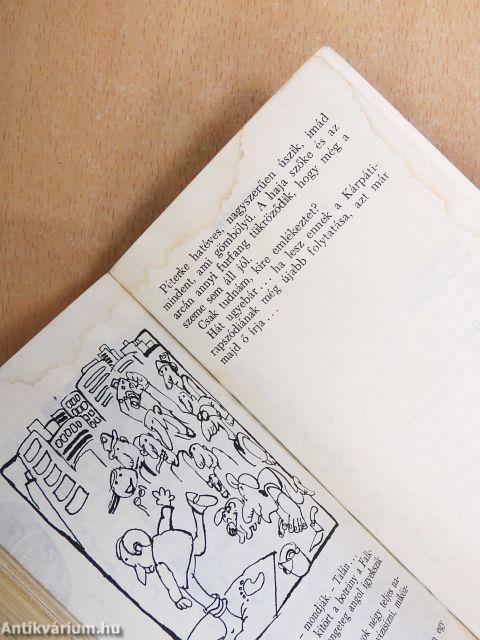 Péterke hatéves, nagyszerűen úszik, imád
mindent, ami gömbölyű. A haja szőke és az
arcán annyi furfang tükröződik, hogy még a
szeme sem áll jól.
Csak tudnám, kire emlékeztet?
Hát ugyebár... ha lesz ennek a Kárpáti-
rapszódiának még újabb folytatása, azt már
majd ő írja...
– mondják – Talán...
tört a botrány a Falk-
angol igyekszik
négy teljes na-
egy
Antikvárium.hu